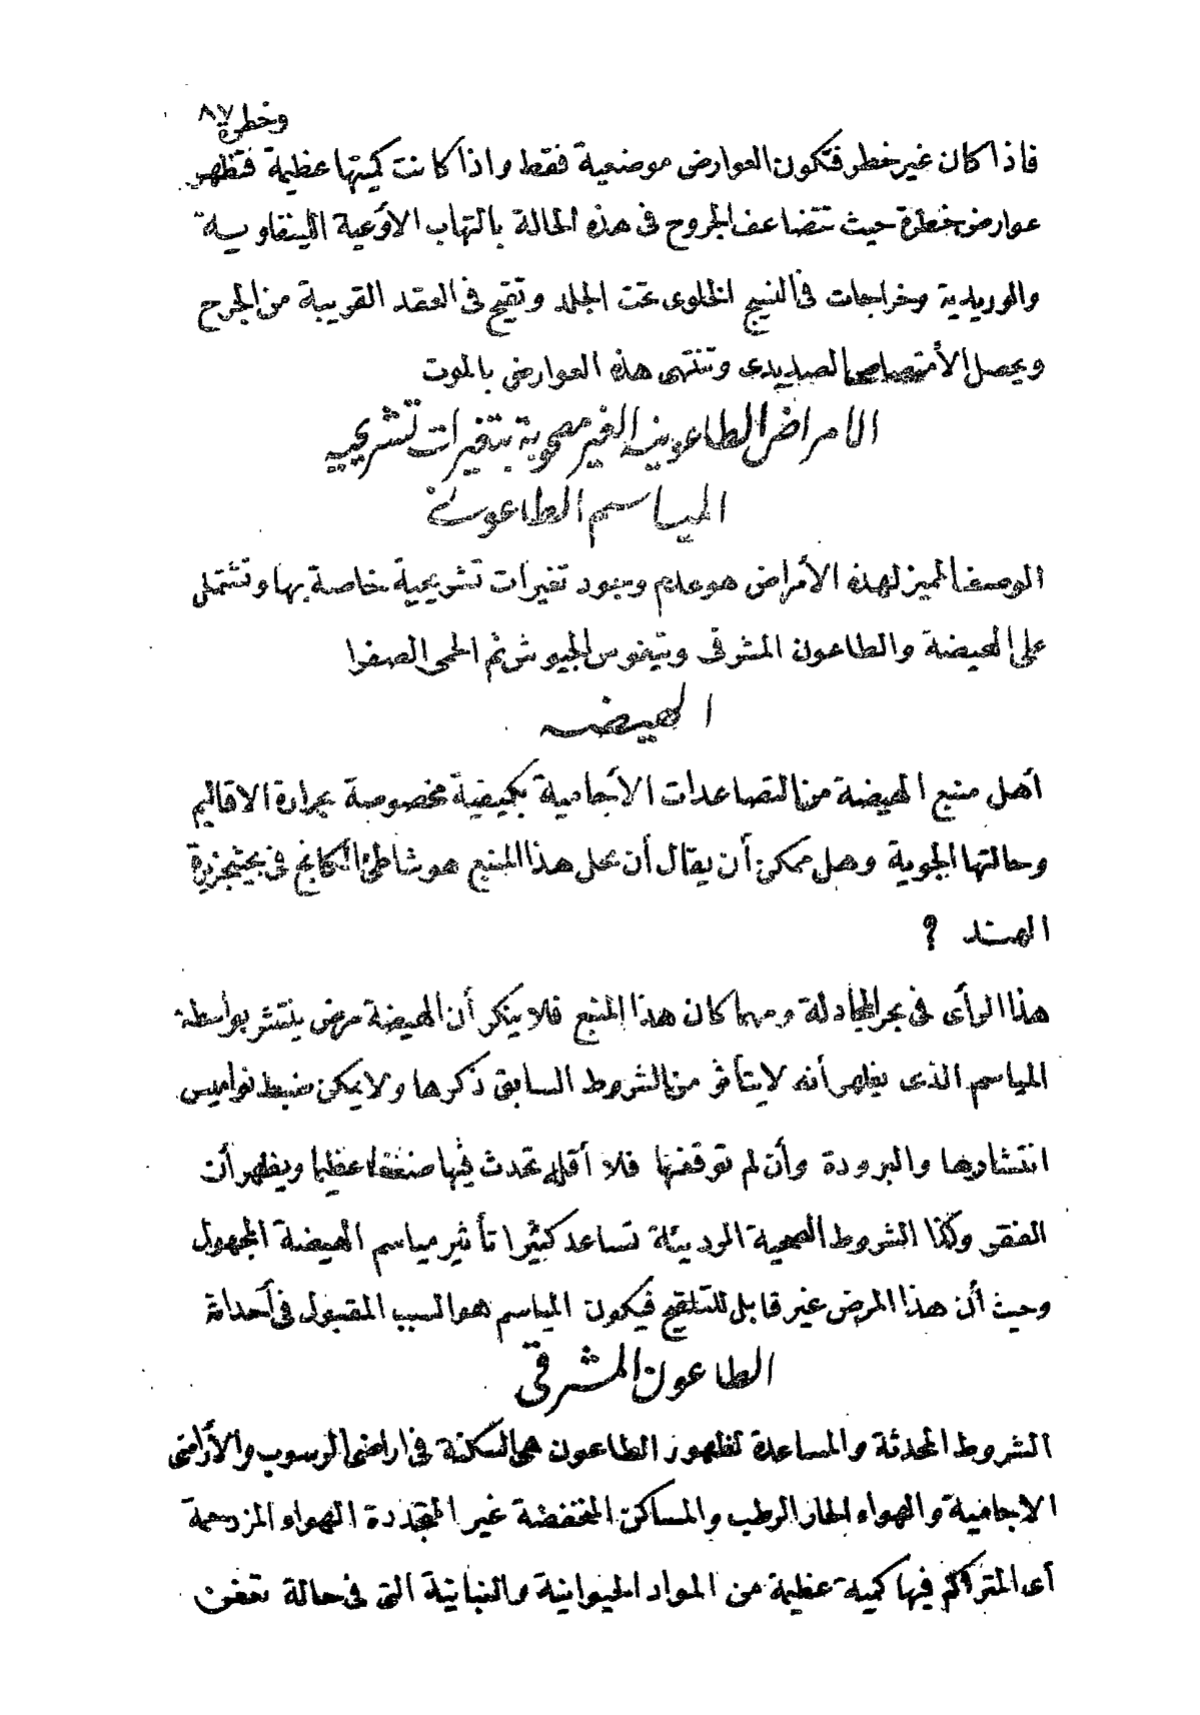 وخطرة ٨٧
فاذا كان غير خطر فتكون العوارض موضعية فقط واذا كانت كميتها عظيمة فتظهر
عوارض خطرة حيث تتضاعف الجروح فى هذه الحالة بالتهاب الأوعية اللينفاوية
والوريدية وخراجات فى النسيج الخلوى تحت الجلد وتقيح فى العقد القريبة من الجرح
ويحصل الأمتصاص الصديدى وتنتهى هذه العوارض بالموت
الامراض الطاعونيه الغير مصحوبة بتغيرات تشريحيه
المياسم الطاعونى
الوصف المميز لهذه الأمراض هو عدم وجود تغيرات تشريحية خاصة بها وتشتمل
على الهيضة والطاعون المشرقى وتيفوس الجيوش ثم الحمى الصفرا
الهيضه
أهل منبع الهيضة من التصاعدات الأجامية بكيفية مخصوصة بحرارة الاقاليم
وحالتها الجوية وهل ممكن أن يقال أن محل هذا المنبع هو شاطئ الكانج فى جزيرة
الهند ؟
هذا الرأى فى بحر المجادلة ومهما كان هذا المنبع فلا ينكر أن الهيضة مرض ينتشر بواسطة
المياسم الذى يظهر أنه لا يتأثر من الشروط السابق ذكرها ولا يمكن ضبط نواميس
انتشارها والبرودة وأن لم توقفها فلا أقله تحدث فيها ضعفا عظيما ويظهر أن
الفقر وكذا الشروط الصحية الرديئة تساعد كثيرا تأثير مياسم الهيضة المجهول
وحيث أن هذا المرض غير قابل للتلقيح فيكون المياسم هو السبب المقبول فى أحداثة
الطاعون المشرقى
الشروط المحدثة والمساعدة لظهور الطاعون هى السكنة فى اراضى الرسوب والأراضى
الاجامية والهواء الحار الرطب والمساكن المنخفضة غير المتجددة الهواء المزدحمة
أى المتراكم فيها كمية عظيمة من المواد الحيوانية والنباتية التى فى حالة تعفن